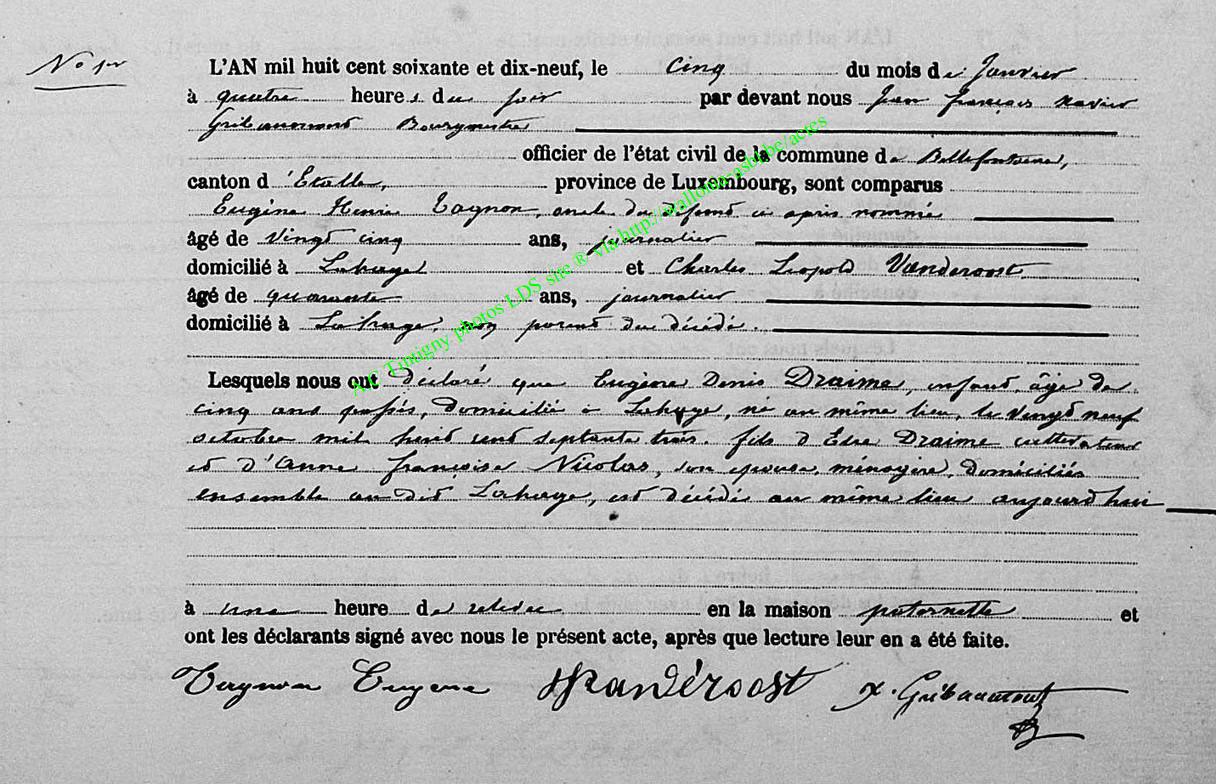 N° 1er
L'AN mil huit cent soixante et dix-neuf, le cinq du mois de Janvier
à quatre heures du soir par devant nous Jean françois Xavier
Gribaumont Bourgmestre
officier de l'état civil de la commune de Bellefontaine,
canton d'Etalle, province de Luxembourg, sont comparus
Eugène Henri Tagnon, oncle du défunt ci après nommé
âgé de vingt cinq ans, journalier
domicilié à Lahage et Charles Léopold Vanderoost
âgé de quarante ans, journalier
domicilié à Lahage, non parent du décédé.
Lesquels nous ont déclaré que Eugène Denis Draime, enfant, âgé de
cinq ans passés, domicilié à Lahage, né au même lieu, le vingt neuf
octobre mil huit cent septante trois. fils d'Elie Draime cultivateur
et d'Anne françoise Nicolas, son épouse, ménagère, domiciliés
ensemble au dit Lahage, est décédé au même lieu aujourd'hui
à une heure de relevée en la maison paternelle et
ont les déclarants signé avec nous le présent acte, après que lecture leur en a été faite.
Tagnon Eugene Vanderoost X. Gribaumont
AC Tintigny photos LDS site ® via http://wallonia-asbl.be/actes